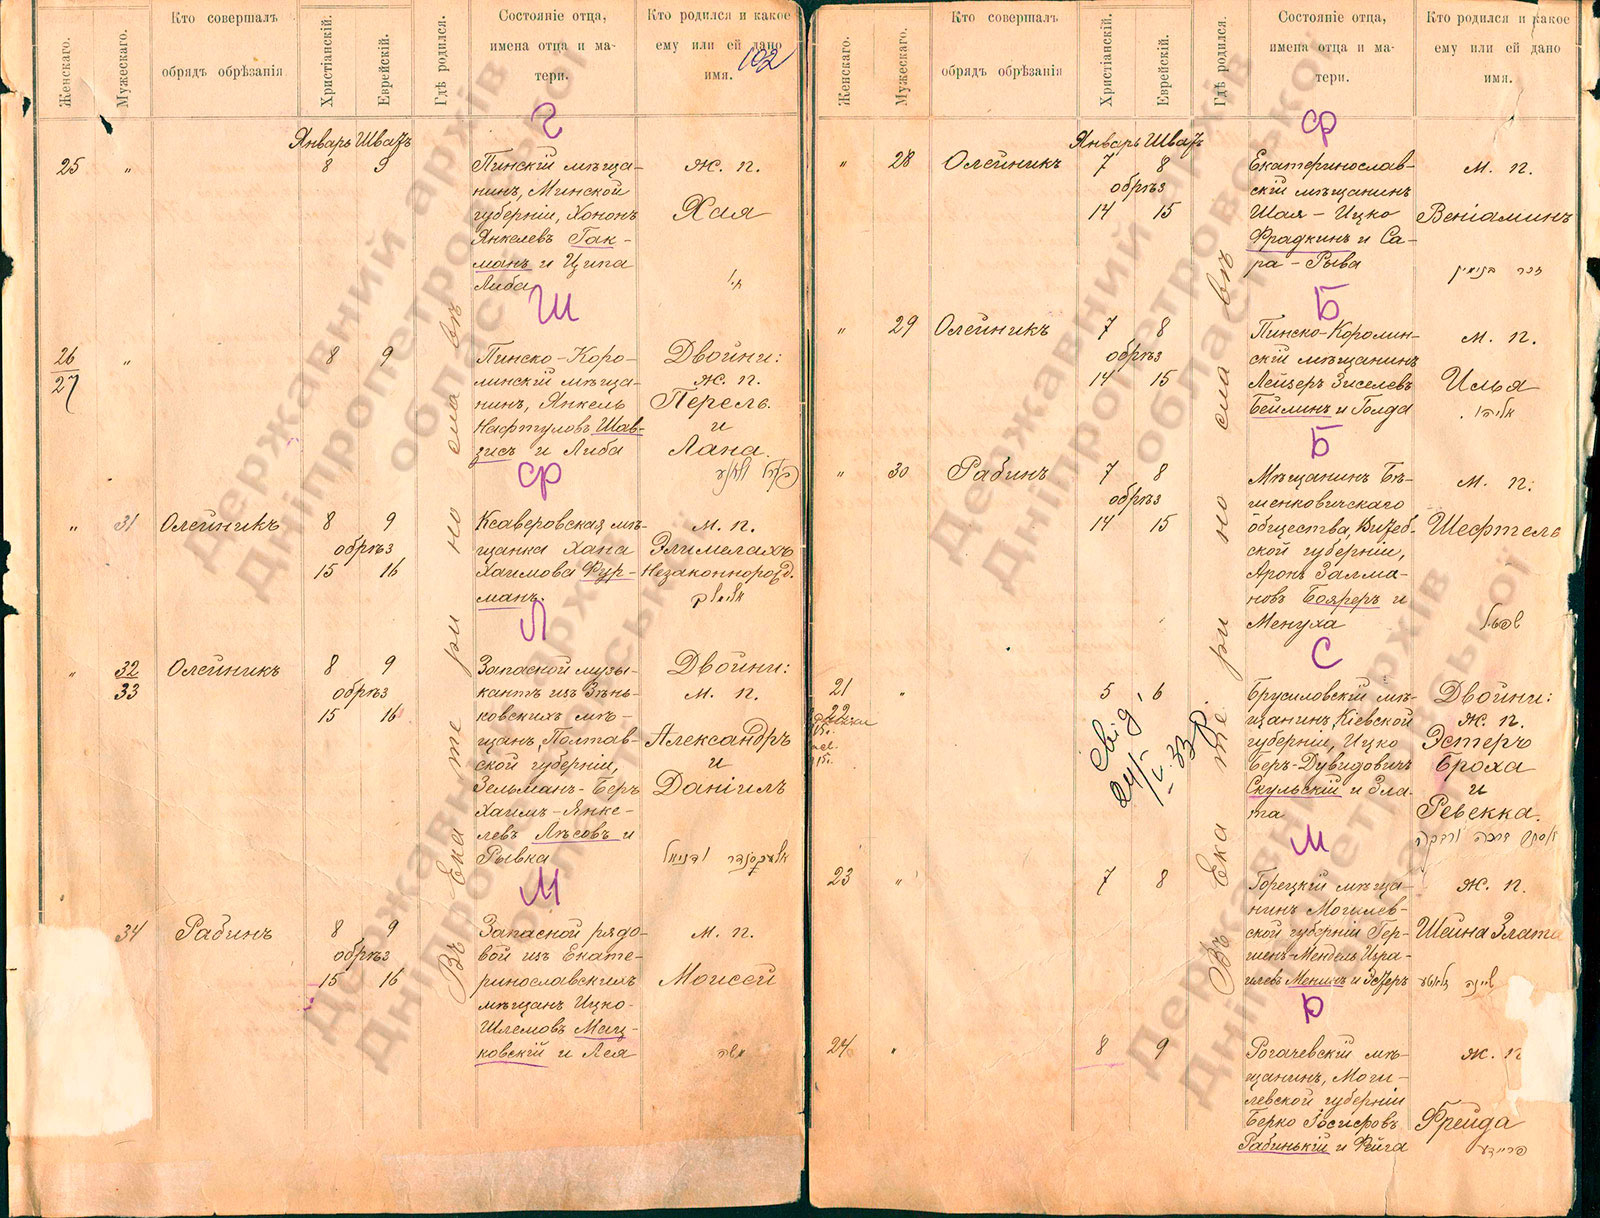 Женскаго.
Мужескаго.
Кто совершалъ
обрядъ обрѣзанія
Христіанскій.
Еврейскій.
Гдѣ родился.
Состояніе отца,
имена отца и ма-
тери.
Кто родился и какое
ему или ей дано
имя.
102
Г
Январь Шватъ
25 " 8 9
Пинскій мѣща-
нинъ, Минской
губерніи, Хононъ
Янкелевъ Гак-
манъ и Ципа
Либа
Ж. п.
Хая
חי'
Ш
26 " 8 9
27
Пинско-Коро-
линскій мѣща-
нинъ, Янкель
Нафтуловъ Шав-
зисъ и Либа
Двойни:
Ж. п.
Перель
и
Лана.
Ф
" 31 Олейникъ 8 9
обрѣз
15 16
Ксаверовская мѣ-
щанка Хана
Хаимова Фур-
манъ.
м. п.
Элимелахъ
Незаконнорожд.
אלימלך
Л
" 32 Олейникъ 8 9
33 обрѣз
15 16
Запасной музы-
кантъ изъ Зѣнь-
ковскихъ мѣ-
щанъ, Полтав-
ской губерніи,
Зельманъ-Беръ
Хаимъ-Янке-
левъ Лѣсовъ и
Рывка
Двойни:
м. п.
Александръ
и
Даніилъ
אלעקסנדר ודניאל
М
34 Рабинъ 8 9
обрѣз
15 16
Запасной рядо-
вой изъ Екате-
ринославскихъ
мѣщанъ Ицко-
Шлемовъ Мац-
ковскій и Лея
м. п.
Моисей
משה
Въ Екатеринославѣ
Женскаго.
Мужескаго.
Кто совершалъ
обрядъ обрѣзанія
Христіанскій.
Еврейскій.
Гдѣ родился.
Состояніе отца,
имена отца и ма-
тери.
Кто родился и какое
ему или ей дано
имя.
Ф
Январь Шватъ
" 28 Олейникъ 7 8
обрѣз
14 15
Екатеринослав-
скій мѣщанинъ
Шая-Ицко
Фрадкинъ и Са-
ра-Рыва
м. п.
Веніаминъ
זכר בנימין
Б
" 29 Олейникъ 7 8
обрѣз
14 15
Пинско-Королин-
скій мѣщанинъ
Лейзеръ Зиселевъ
Бейлинъ и Голда
м. п.
Илья
אליהו.
Б
" 30 Рабинъ 7 8
обрѣз
14 15
Мѣщанинъ Бѣ-
шенковичскаго
общества, Витеб-
ской губерніи,
Аронъ Залма-
новъ Бояреръ и
Менуха
м. п.
Шефтель
שפטיל
С
21 " 5 6
22
свід.
24/V-33р.
Брусиловскій мѣ-
щанинъ, Кіевской
губерніи, Ицко
Беръ-Дувидовичъ
Скульскій и Зла-
та
Двойни:
Ж. п.
Эстеръ
Броха
и
Ревекка.
אסתר ברכה ורבקה
М
23 " 7 8
Горецкій мѣща-
нинъ Могилев-
ской губерніи Гер-
шенъ-Мендель Изра-
илевъ Менинъ и Эстеръ
Ж. п.
Шейна Злата
שיינה זלאטע
Р
24 " 8 9
Рогачевскій мѣ-
щанинъ, Моги-
левской губерніи
Берко Іосифовъ
Рабинькій и Фейга
Ж. п
Фрейда
פריידע
Въ Екатеринославѣ
Державний архів
Дніпропетровської
області